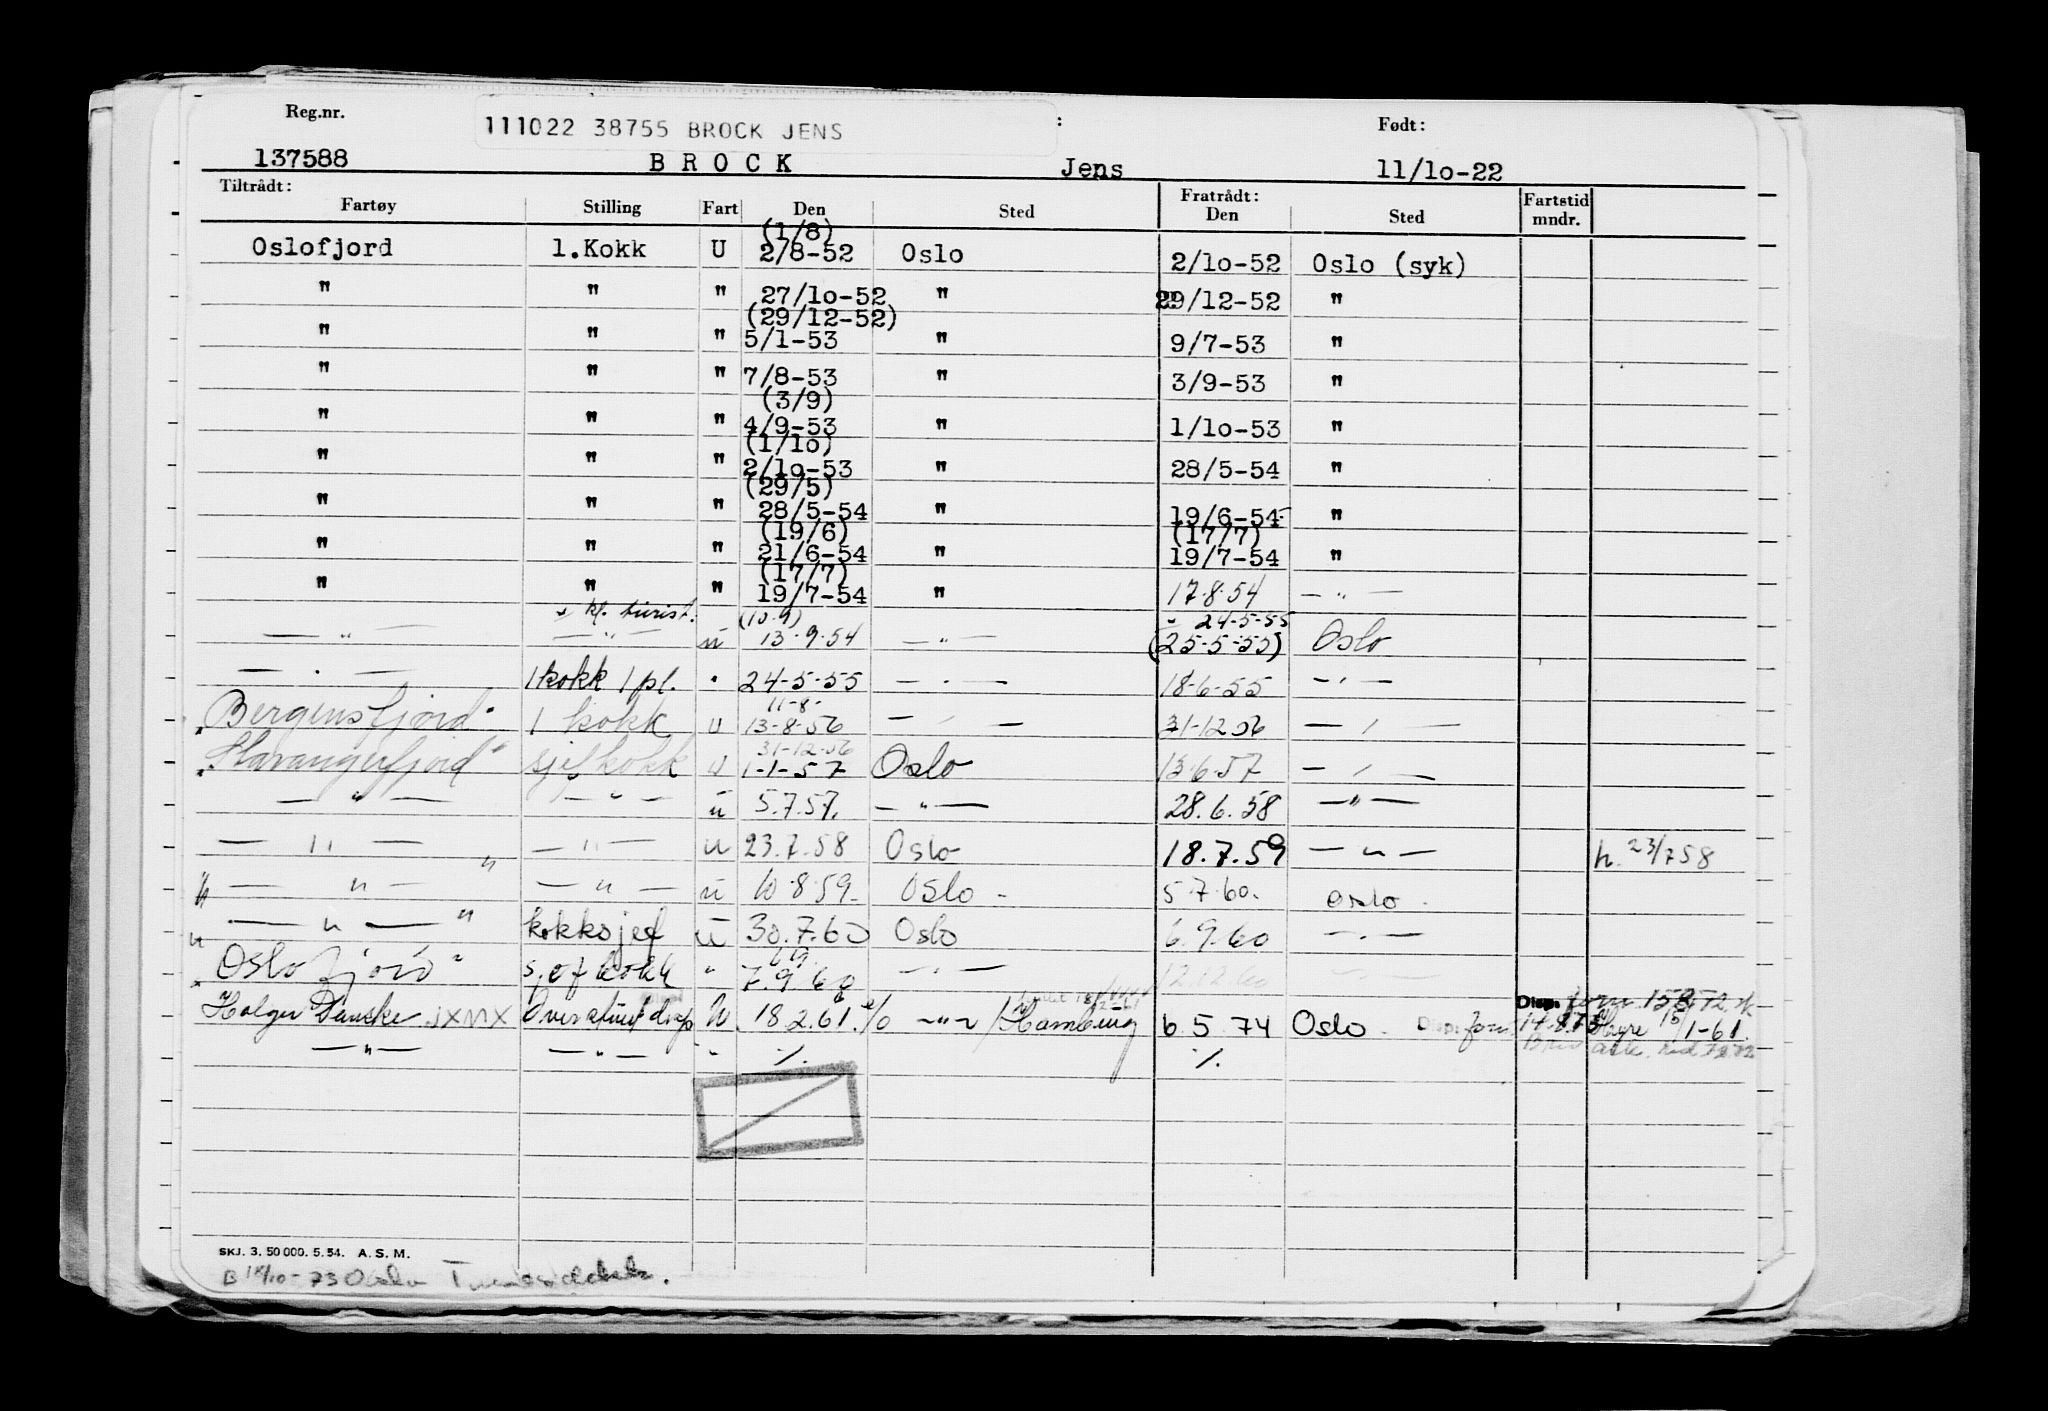 Reg.nr. 111022 38755 BROCK JENS : Født:
137588 BROCK Jens 11/10-22
Tiltrådt: Fratrådt: Fartstid
Fartøy Stilling Fart Den Sted Den Sted mndr.
(1/8)
Oslofjord 1.Kokk U 2/8-52 Oslo 2/10-52 Oslo (syk)
" " " 27/10-52 " 29/12-52 "
(29/12-52)
" " " 5/1-53 " 9/7-53 "
" " " 7/8-53 " 3/9-53 "
(3/9)
" " " 4/9-53 " 1/10-53 "
(1/10)
" " " 2/10-53 " 28/5-54 "
(29/5)
" " " 28/5-54 " 19/6-54 "
(19/6) (17/7)
" " " 21/6-54 " 19/7-54 "
(17/7)
" " " 19/7-54 " 17.8.54 — " —
" kl. turist. (10.9) 24-5-55
— " — — " — u 13.9.54 — " — (25-5-55) Oslo
— " — 1 kokk 1 pl. " 24-5-55 — " — 18-6-55 — " —
11-8-
"Bergensfjord" 1 kokk u 13-8-56 — " — 31-12 56 — " —
31-12-56
"Stavangerfjord" sjefkokk u 1-1-57 Oslo 13.6.57 — " —
— " — — " — u 5.7.57. — " — 28.6.58 — " —
— " — — " — u 23.7.58 Oslo 18.7.59 — " — h. 23/7 58
" — " — " — " — u 10.8.59 Oslo - 5.7.60. Oslo -
" — " — " kokksjef u 30.7.60 Oslo 6.9.60 — " —
6/9.
"Oslofjord" sjefkokk " 7.9 60 — " — 12.12.60 — " —
Disp. forn. 15872
Holger Danske JXMX U 18.2.61. — " — /Hamburg 6.5.74 Oslo Disp. forn 14-8.73 Høyre 15/1-61.
— " — — " — " %. %.
SKJ. 3. 50 000. 5. 54. A. S. M.
B 18/10-73 Oslo